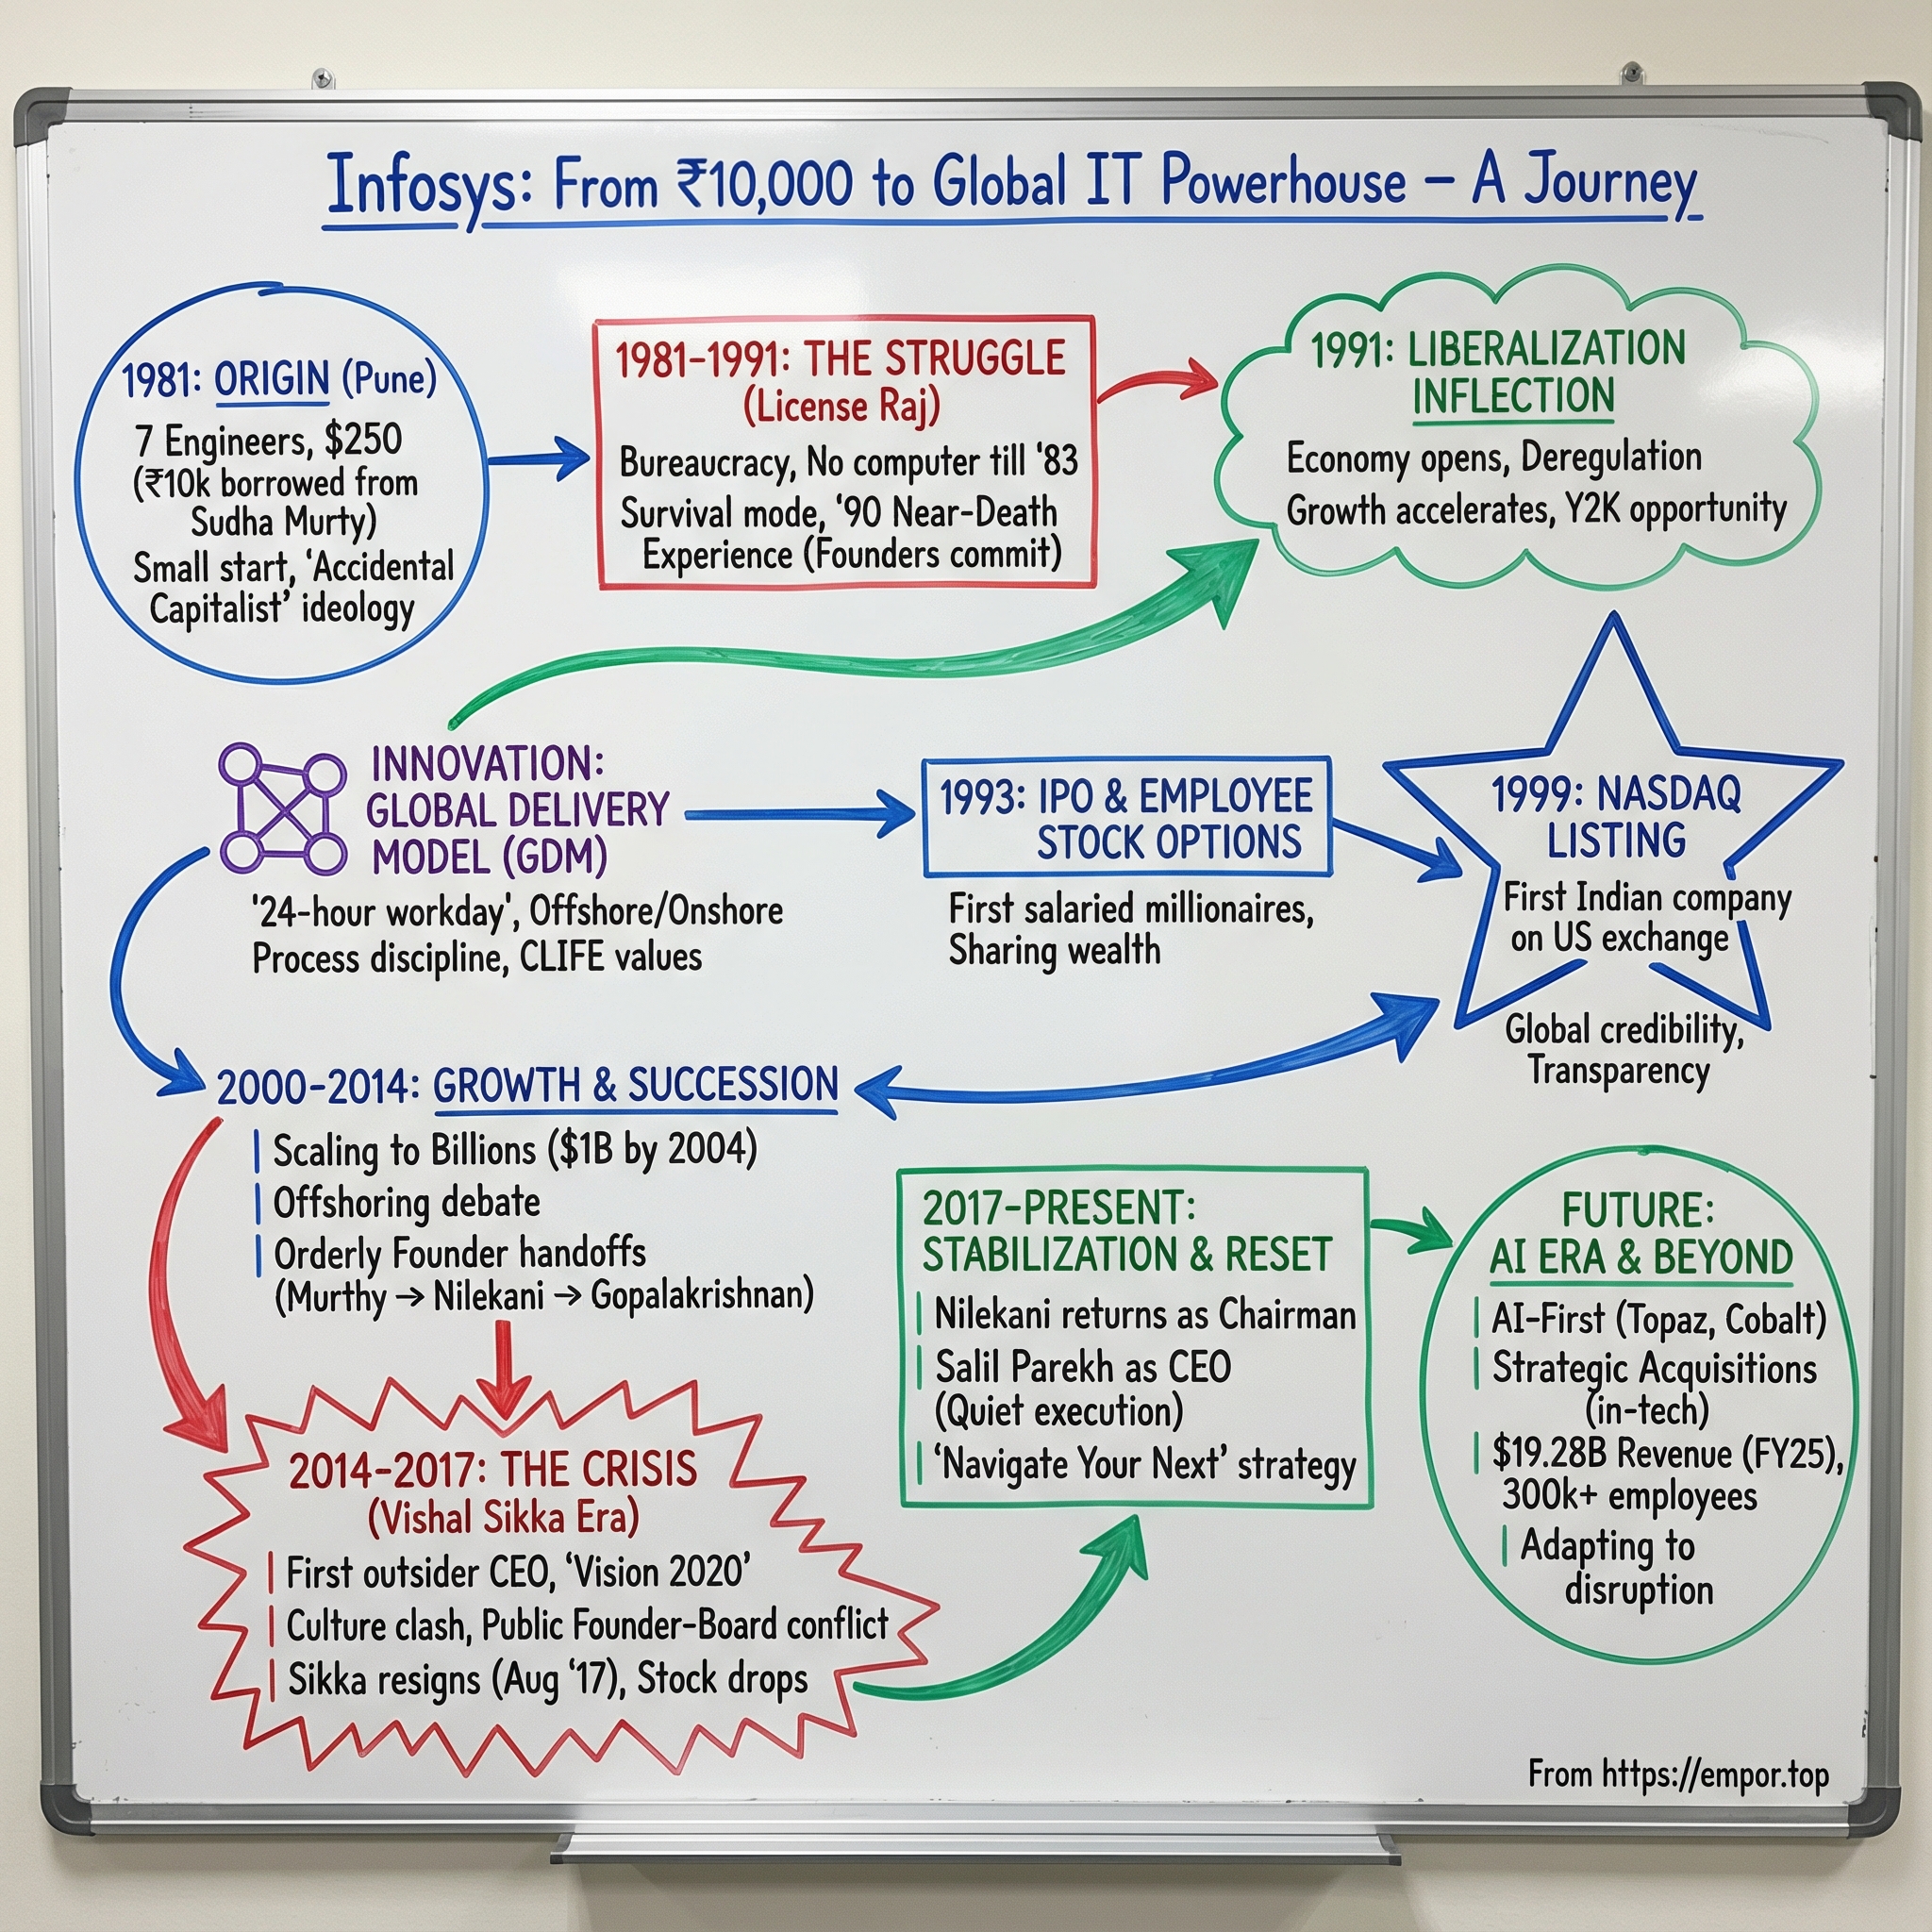 Infosys: From ₹10,000 to Global IT Powerhouse – A Journey
1981: ORIGIN (Pune)
7 Engineers, $250
(₹10k borrowed from
Sudha Murty)
Small start, ‘Accidental
Capitalist’ ideology
1981-1991: THE STRUGGLE
(License Raj)
Bureaucracy, No computer till ‘83
Survival mode, ‘90 Near-Death
Experience (Founders commit)
1991: LIBERALIZATION
INFLECTION
Economy opens, Deregulation
Growth accelerates, Y2K opportunity
INNOVATION:
GLOBAL DELIVERY
MODEL (GDM)
'24-hour workday', Offshore/Onshore
Process discipline, CLIFE values
1993: IPO & EMPLOYEE
STOCK OPTIONS
First salaried millionaires,
Sharing wealth
1999: NASDAQ
LISTING
First Indian company
on US exchange
Global credibility,
Transparency
2000-2014: GROWTH & SUCCESSION
Scaling to Billions ($1B by 2004)
Offshoring debate
Orderly Founder handoffs
(Murthy → Nilekani → Gopalakrishnan)
2014-2017: THE CRISIS
(Vishal Sikka Era)
First outsider CEO, ‘Vision 2020’
Culture clash, Public Founder-Board conflict
Sikka resigns (Aug ‘17), Stock drops
2017-PRESENT:
STABILIZATION & RESET
Nilekani returns as Chairman
Salil Parekh as CEO
(Quiet execution)
‘Navigate Your Next’ strategy
FUTURE:
AI ERA & BEYOND
AI-First (Topaz, Cobalt)
Strategic Acquisitions
(in-tech)
$19.28B Revenue (FY25),
300k+ employees
Adapting to
disruption
From https://empor.top